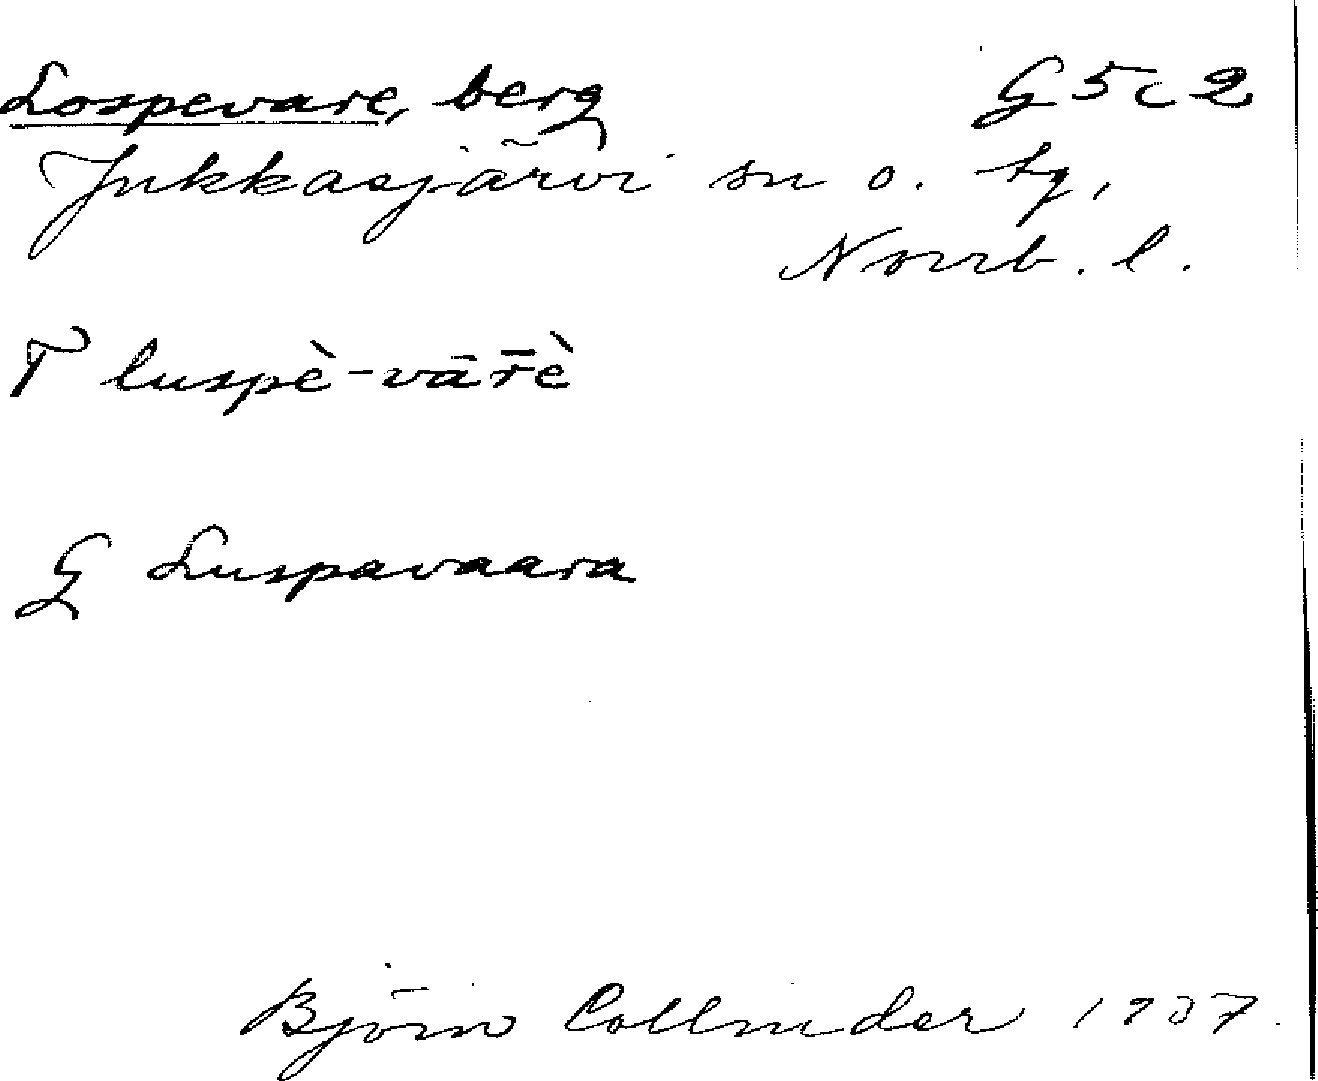 Lospevare, berg G 5 c 2
Jukkasjärvi sn o. tg,
Norrb. l.
T luspè-vār̄è
G Luspavaara
Björn Collinder 1937.